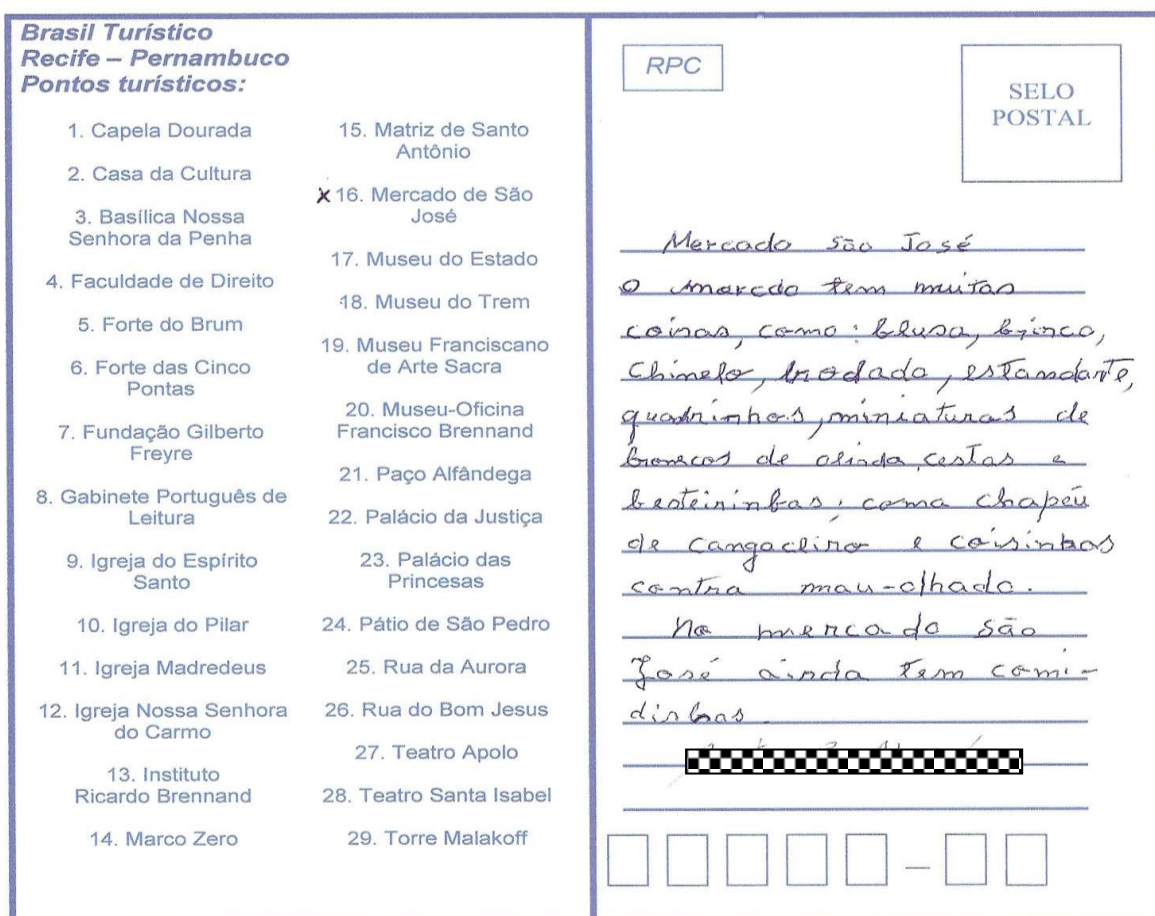 Brasil Turístico
Recife – Pernambuco
Pontos turísticos:
1. Capela Dourada
2. Casa da Cultura
3. Basílica Nossa
Senhora da Penha
4. Faculdade de Direito
5. Forte do Brum
6. Forte das Cinco
Pontas
7. Fundação Gilberto
Freyre
8. Gabinete Português de
Leitura
9. Igreja do Espírito
Santo
10. Igreja do Pilar
11. Igreja Madredeus
12. Igreja Nossa Senhora
do Carmo
13. Instituto
Ricardo Brennand
14. Marco Zero
15. Matriz de Santo
Antônio
x 16. Mercado de São
José
17. Museu do Estado
18. Museu do Trem
19. Museu Franciscano
de Arte Sacra
20. Museu-Oficina
Francisco Brennand
21. Paço Alfândega
22. Palácio da Justiça
23. Palácio das
Princesas
24. Pátio de São Pedro
25. Rua da Aurora
26. Rua do Bom Jesus
27. Teatro Apolo
28. Teatro Santa Isabel
29. Torre Malakoff
RPC
SELO
POSTAL
Mercado são José
O mercdo tem muitas
coisas, como: blusa, brinco,
Chinelo, brodado, estandarte,
quadrinhos, miniaturas de
bonecos de olinda, cestas e
besteirinhas, como chapéu
de cangaceiro e coisinhas
contra mau-olhado.
No mercado são
José ainda tem comi-
dinhas.